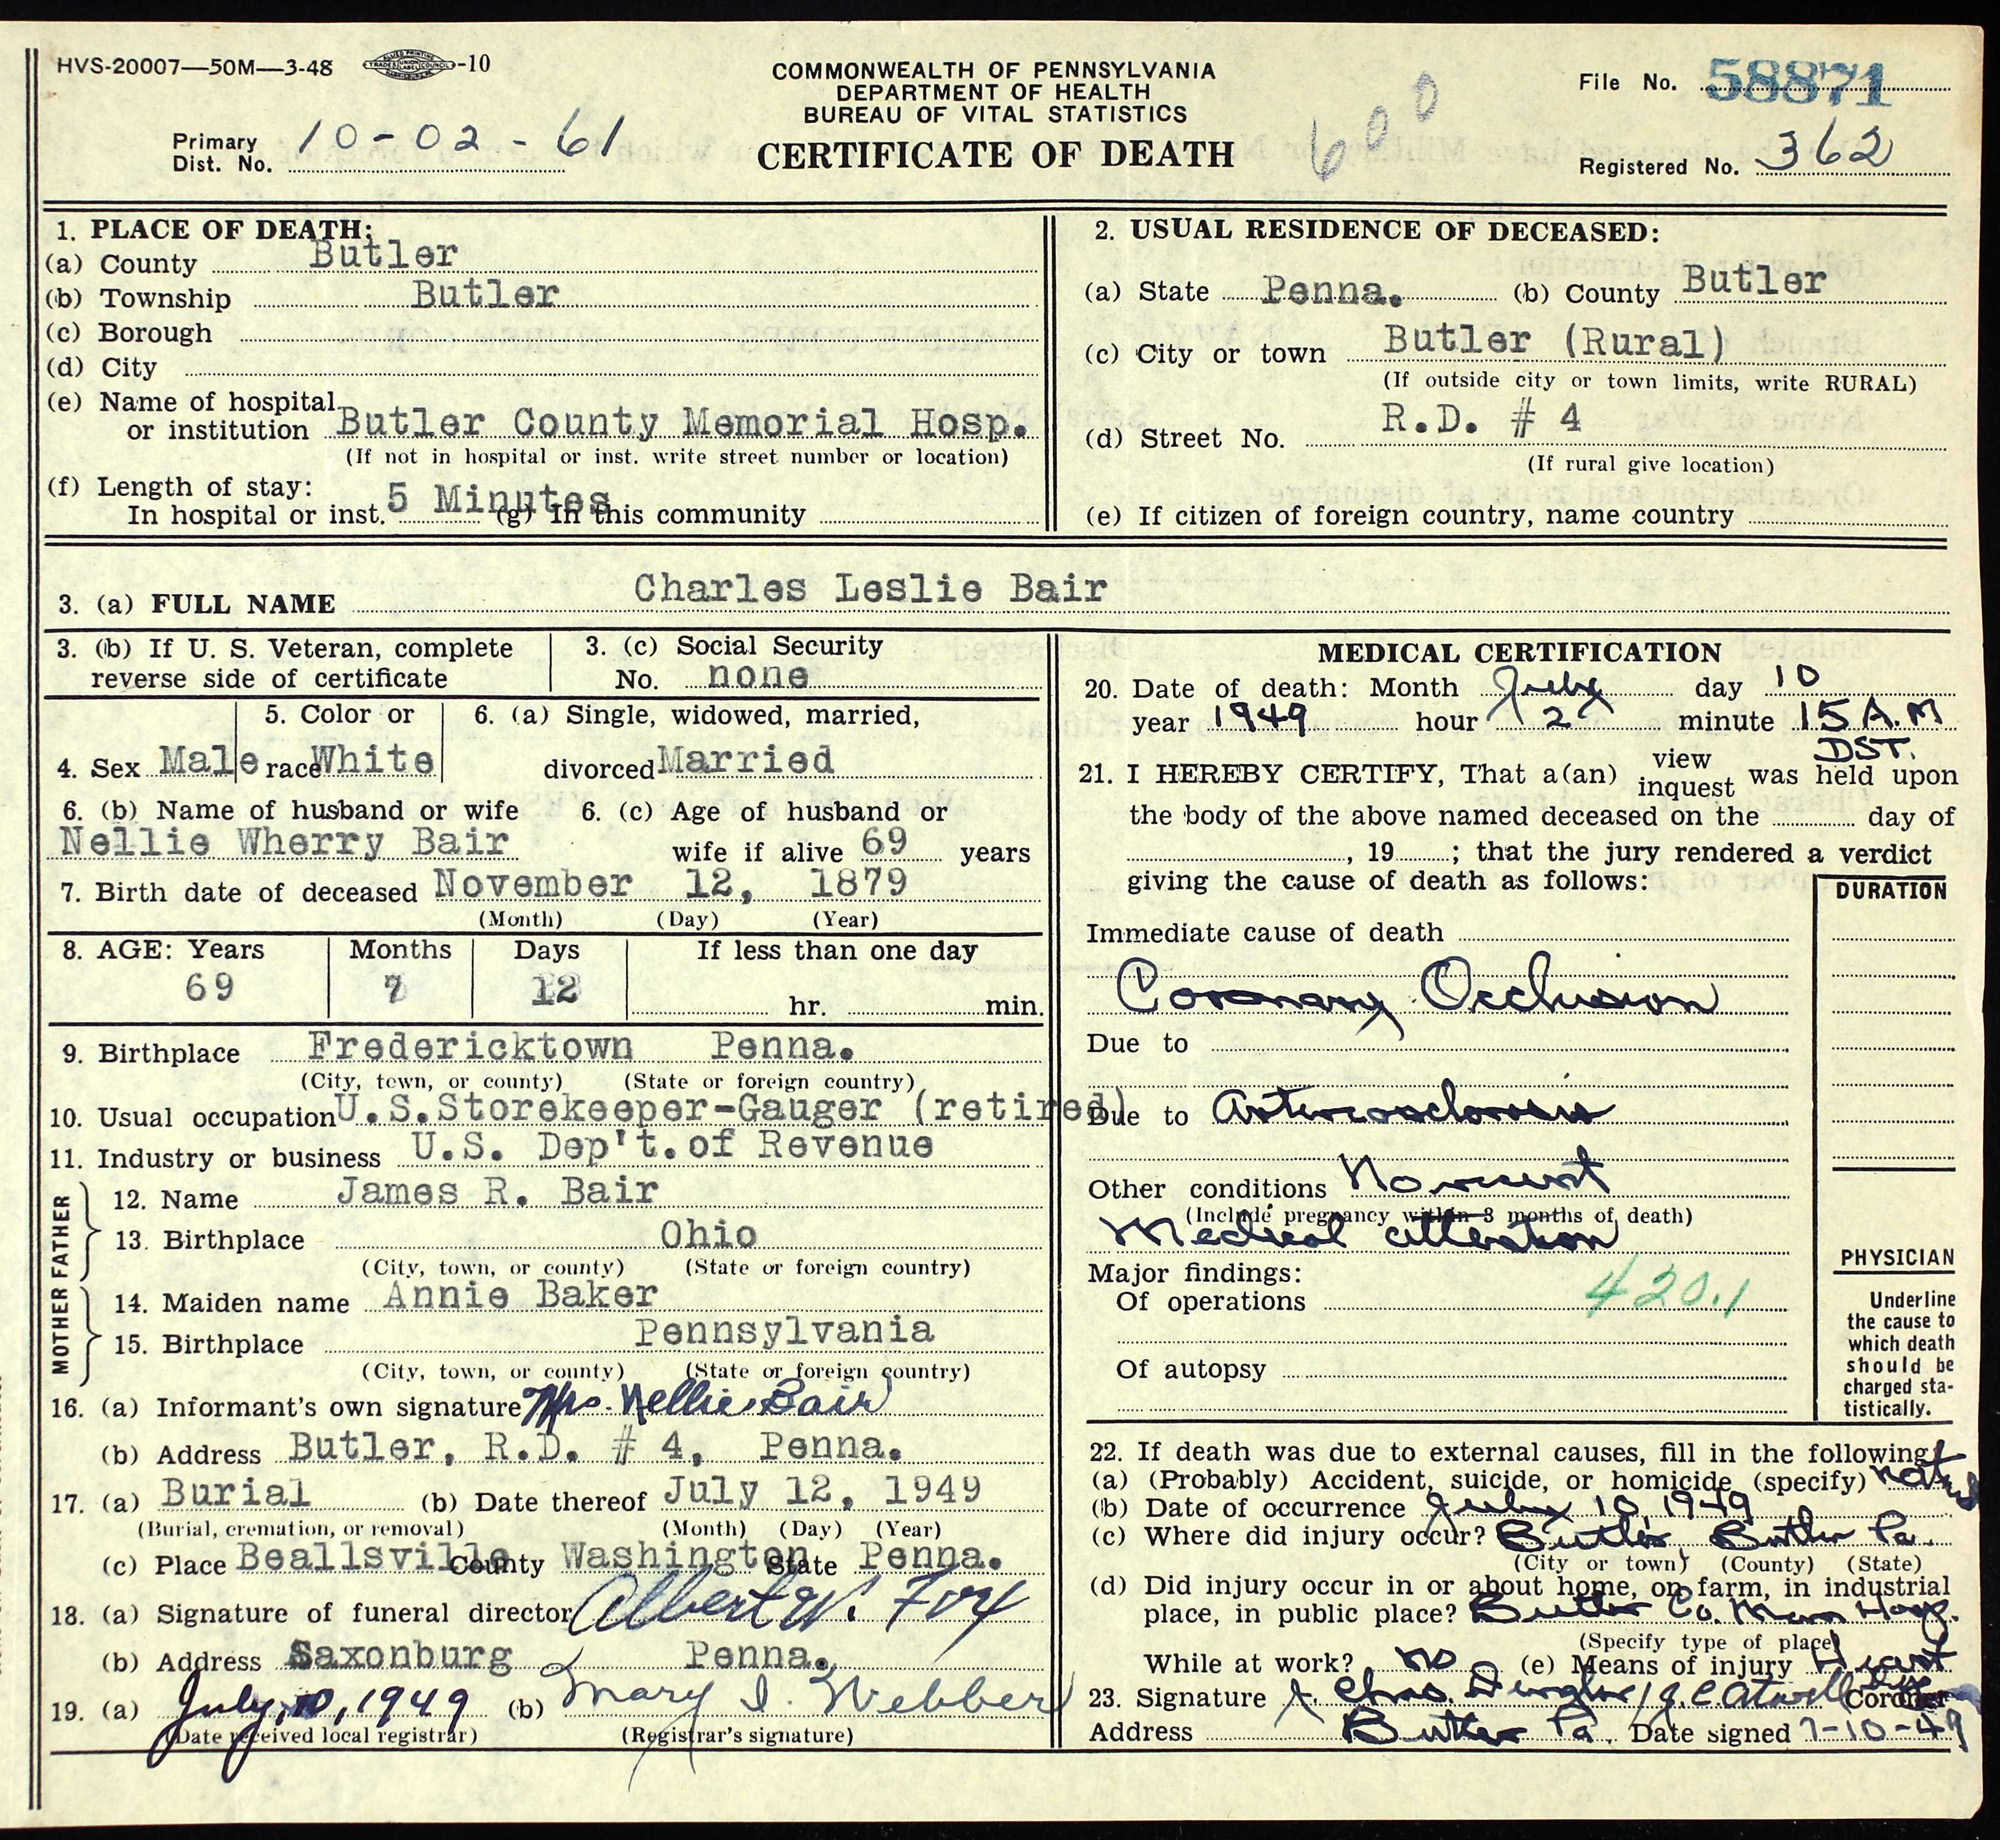 HVS-20007—50M—3-48 -10
COMMONWEALTH OF PENNSYLVANIA
DEPARTMENT OF HEALTH
BUREAU OF VITAL STATISTICS
CERTIFICATE OF DEATH
600
File No. 58871
Primary Dist. No. 10-02-61
Registered No. 362
1. PLACE OF DEATH:
(a) County Butler
(b) Township Butler
(c) Borough
(d) City
(e) Name of hospital
or institution Butler County Memorial Hosp.
(If not in hospital or inst. write street number or location)
(f) Length of stay:
In hospital or inst. 5 Minutes (g) In this community
2. USUAL RESIDENCE OF DECEASED:
(a) State Penna. (b) County Butler
(c) City or town Butler (Rural)
(If outside city or town limits, write RURAL)
(d) Street No. R.D. # 4
(If rural give location)
(e) If citizen of foreign country, name country
3. (a) FULL NAME Charles Leslie Bair
3. (b) If U. S. Veteran, complete
reverse side of certificate
3. (c) Social Security
No. none
4. Sex Male
5. Color or
race White
6. (a) Single, widowed, married,
divorced Married
6. (b) Name of husband or wife
Nellie Wherry Bair
6. (c) Age of husband or
wife if alive 69 years
7. Birth date of deceased November 12, 1879
(Month) (Day) (Year)
8. AGE: Years Months Days If less than one day
69 7 12 hr. min.
9. Birthplace Fredericktown Penna.
(City, town, or county) (State or foreign country)
10. Usual occupation U.S.Storekeeper-Gauger (retired)
11. Industry or business U.S. Dep't.of Revenue
FATHER
12. Name James R. Bair
13. Birthplace Ohio
(City, town, or county) (State or foreign country)
MOTHER
14. Maiden name Annie Baker
15. Birthplace Pennsylvania
(City, town, or county) (State or foreign country)
16. (a) Informant's own signature Mrs. Nellie Bair
(b) Address Butler, R.D. # 4, Penna.
17. (a) Burial (b) Date thereof July 12, 1949
(Burial, cremation, or removal) (Month) (Day) (Year)
(c) Place Beallsville County Washington State Penna.
18. (a) Signature of funeral director Albert W. Fox
(b) Address Saxonburg Penna.
19. (a) July, 10, 1949 (b) Mary I. Webber
(Date received local registrar) (Registrar's signature)
MEDICAL CERTIFICATION
20. Date of death: Month July day 10
year 1949 hour 2 minute 15 A.M
DST.
21. I HEREBY CERTIFY, That a(an) view inquest was held upon
the body of the above named deceased on the day of
, 19 ; that the jury rendered a verdict
giving the cause of death as follows:
DURATION
Immediate cause of death
Coronary Occlusion
Due to
Due to Arteriosclerosis
Other conditions No recent
(Include pregnancy within 3 months of death)
Medical attention
Major findings:
Of operations 420.1
Of autopsy
PHYSICIAN
Underline
the cause to
which death
should be
charged sta-
tistically.
22. If death was due to external causes, fill in the following:
(a) (Probably) Accident, suicide, or homicide (specify) natural
(b) Date of occurrence July 10, 1949
(c) Where did injury occur? Butler Butler Pa.
(City or town) (County) (State)
(d) Did injury occur in or about home, on farm, in industrial
place, in public place? Butler Co. Mem Hosp.
(Specify type of place)
While at work? no (e) Means of injury Heart
23. Signature J. Chas. Coroner
Address Butler Pa. Date signed 7-10-49